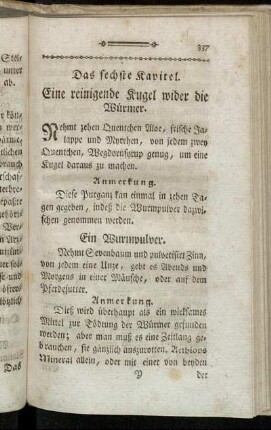 337
Das sechste Kapitel.
Eine reinigende Kugel wider die
Würmer.
Nehmt zehen Quentchen Aloe, frische Ja-
lappe und Myrrhen, von jedem zwey
Quentchen, Wegdornsyrup genug, um eine
Kugel daraus zu machen.
Anmerkung.
Diese Purganz kan einmal in zehen Ta-
gen gegeben, indeß die Wurmpulver dazwi-
schen genommen werden.
Ein Wurmpulver.
Nehmt Sevenbaum und pulverisirt Zinn,
von jedem eine Unze, gebt es Abends und
Morgens in einer Mäusche, oder auf dem
Pferdefutter.
Anmerkung.
Dieß wird überhaupt als ein wirksames
Mittel zur Tödtung der Würmer gefunden
werden; aber man muß es eine Zeitlang ge-
brauchen, sie gänzlich auszurotten. Aethiops
Mineral allein, oder mit einer von beyden
P der
unter
ab.
Das